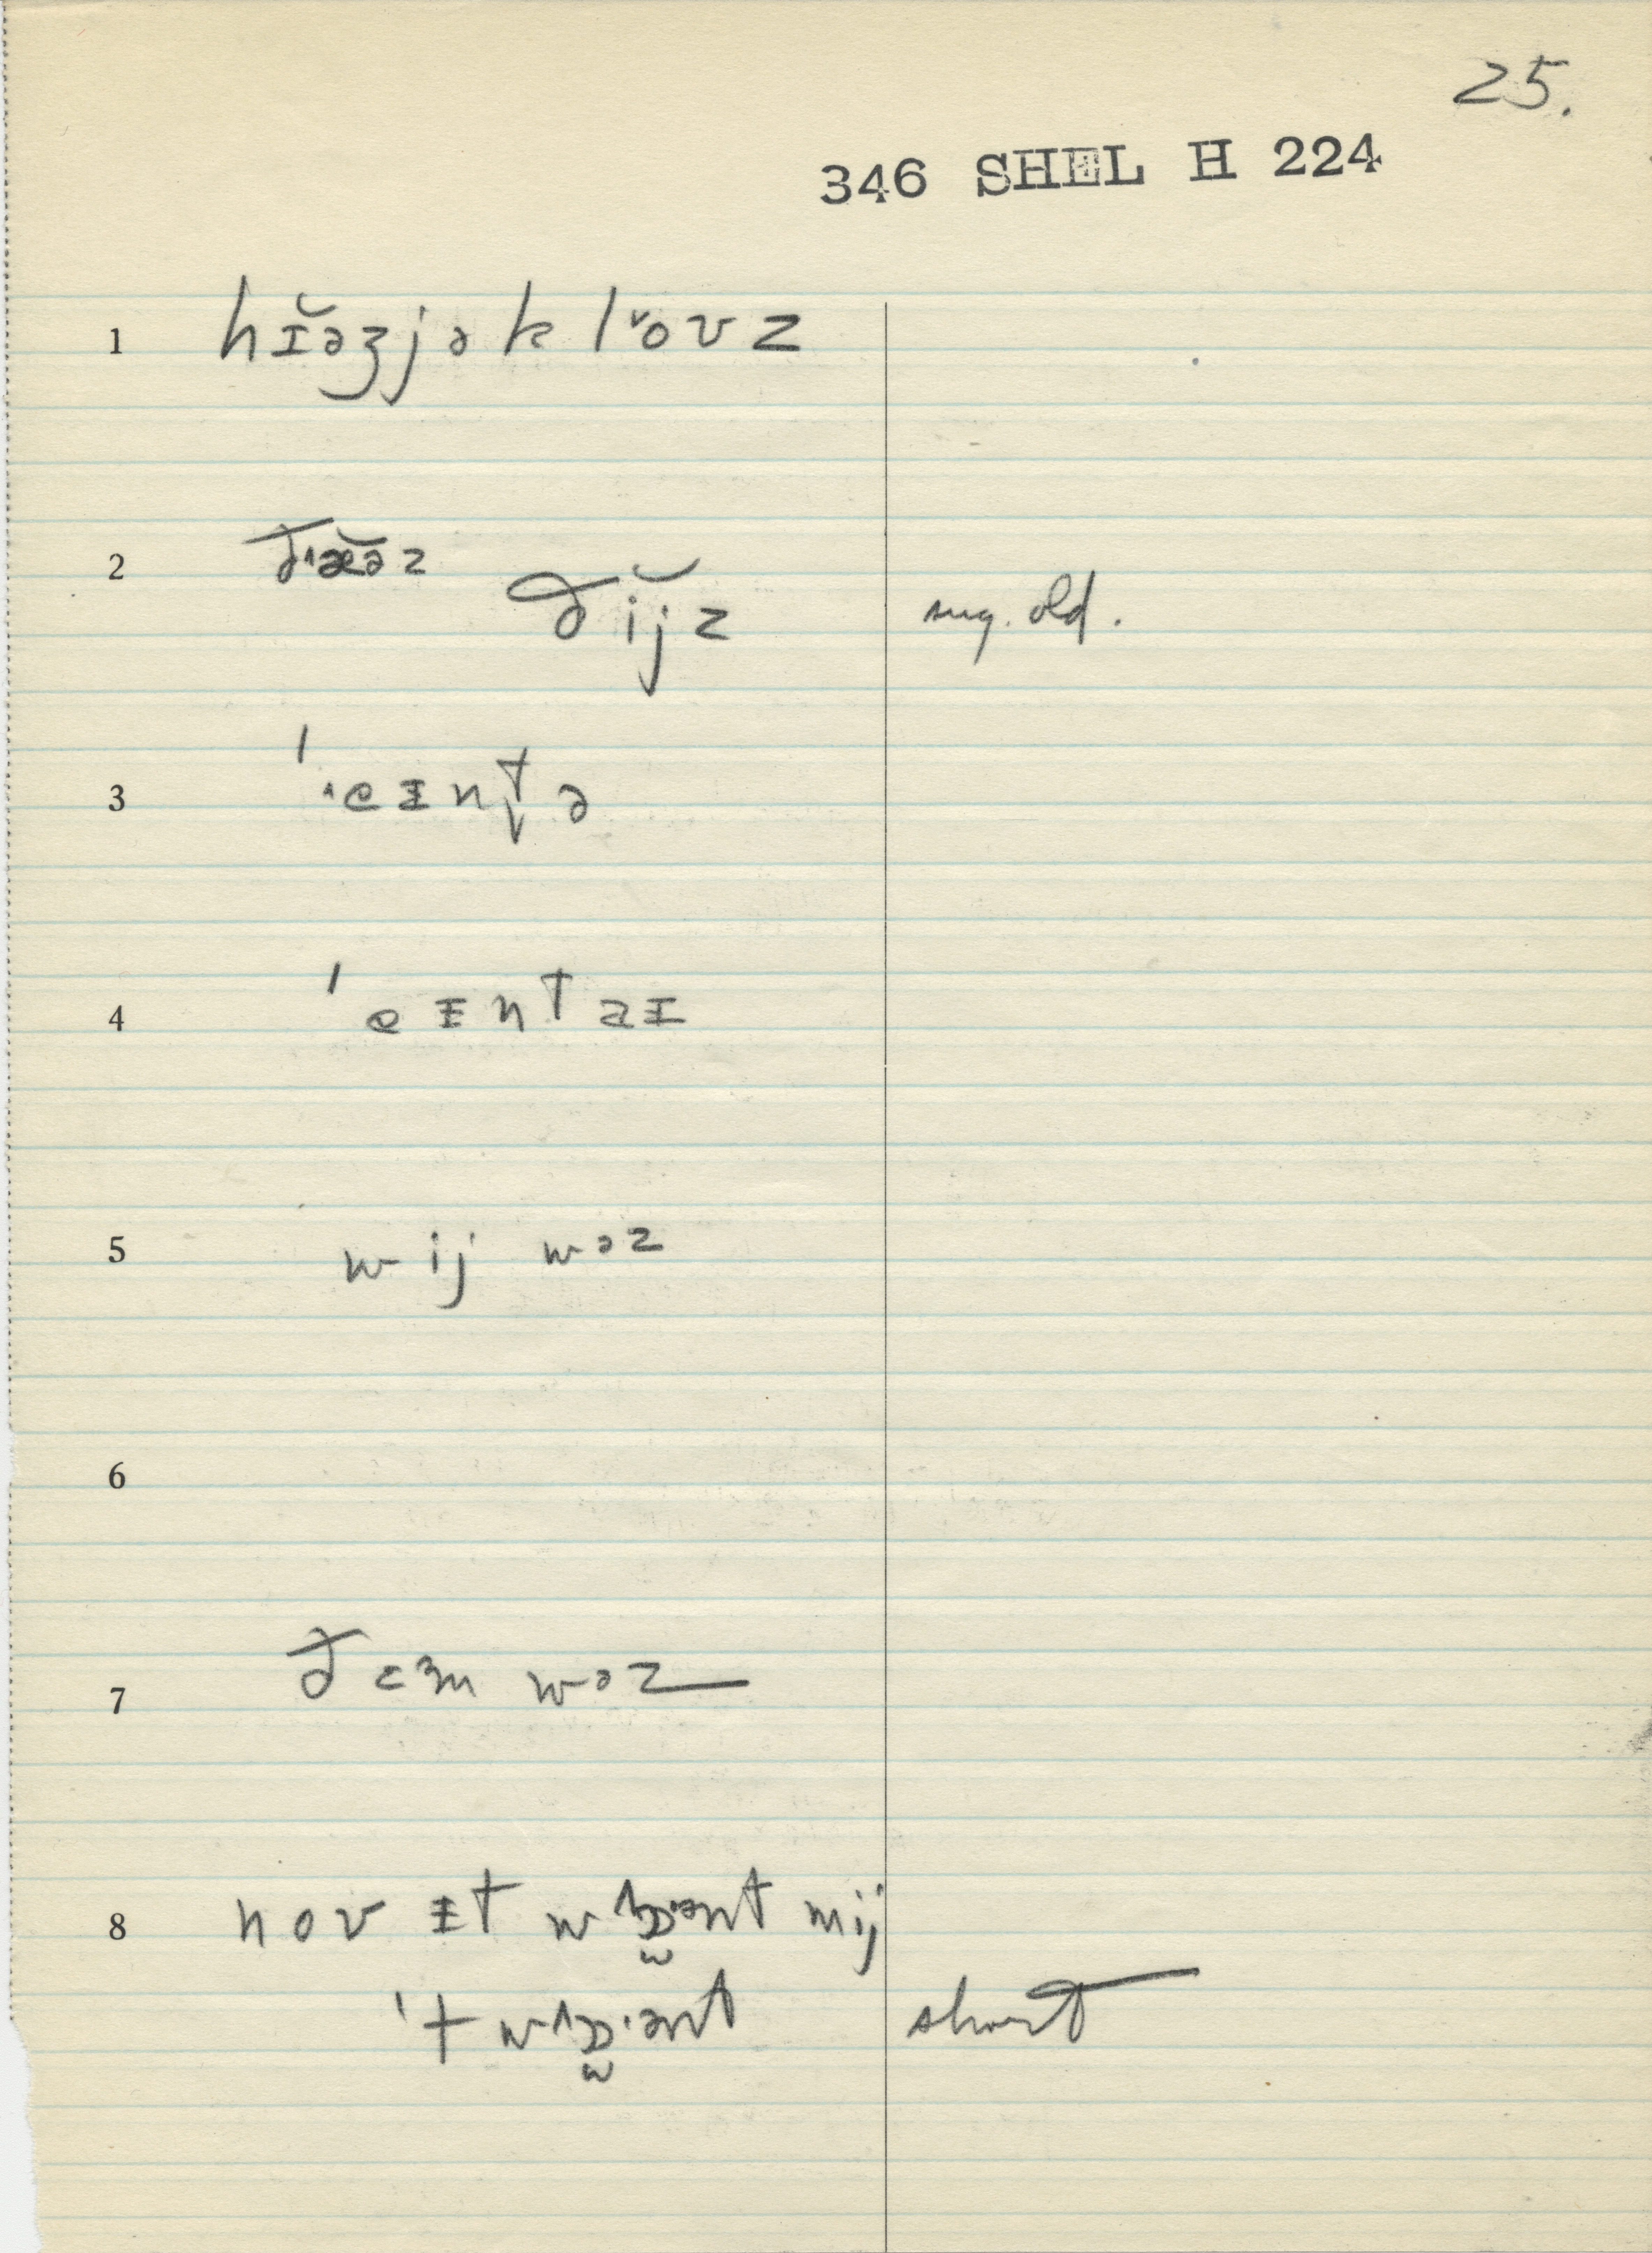 25.
346 SHEL H 224
1 hɪ̆əʒjək l˅oʊz
2 ð˄æ̆əz ðĭjz sug. old.
3 '˄eɪnt̬ə
4 'eɪntaɪ
5 wij wəz
6
7 ðɛ˞m wəz
8 noʊ ɪt w˄ɒ̫·ənt mij
't w˄ɒ̫·ənt short